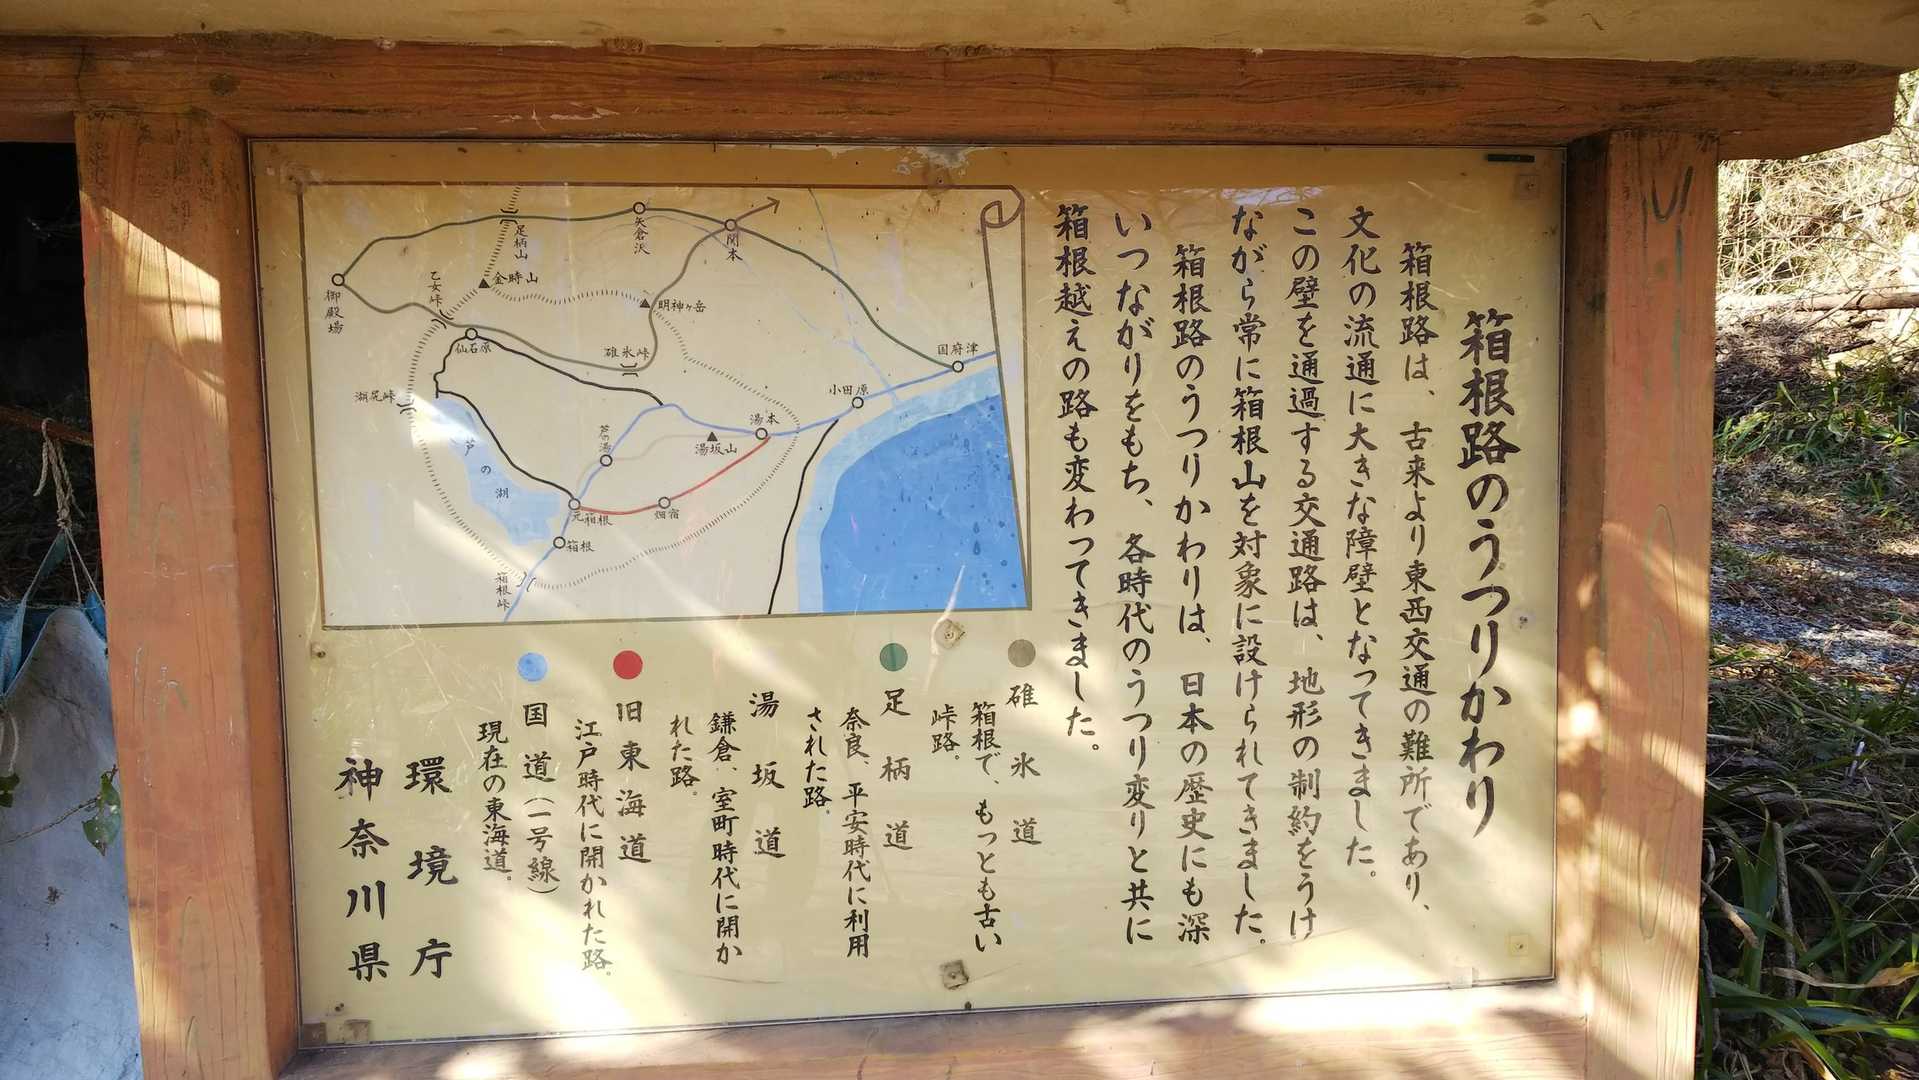 箱根路のうつりかわり
箱根路は、古来より東西交通の難所であり、
文化の流通に大きな障壁となってきました。
この壁を通過する交通路は、地形の制約をうけ
ながら常に箱根山を対象に設けられてきました。
箱根路のうつりかわりは、日本の歴史にも深
いつながりをもち、各時代のうつり変りと共に
箱根越えの路も変わってきました。
碓氷道
箱根で、もっとも古い
峠路。
足柄道
奈良、平安時代に利用
された路。
湯坂道
鎌倉、室町時代に開か
れた路。
旧東海道
江戸時代に開かれた路。
国道(一号線)
現在の東海道。
環境庁
神奈川県
足柄山
矢倉沢
関本
金時山
乙女峠
御殿場
明神ヶ岳
仙石原
碓氷峠
国府津
湖尻峠
小田原
湯本
芦の湯
湯坂山
芦の湖
元箱根
畑宿
箱根
箱根峠